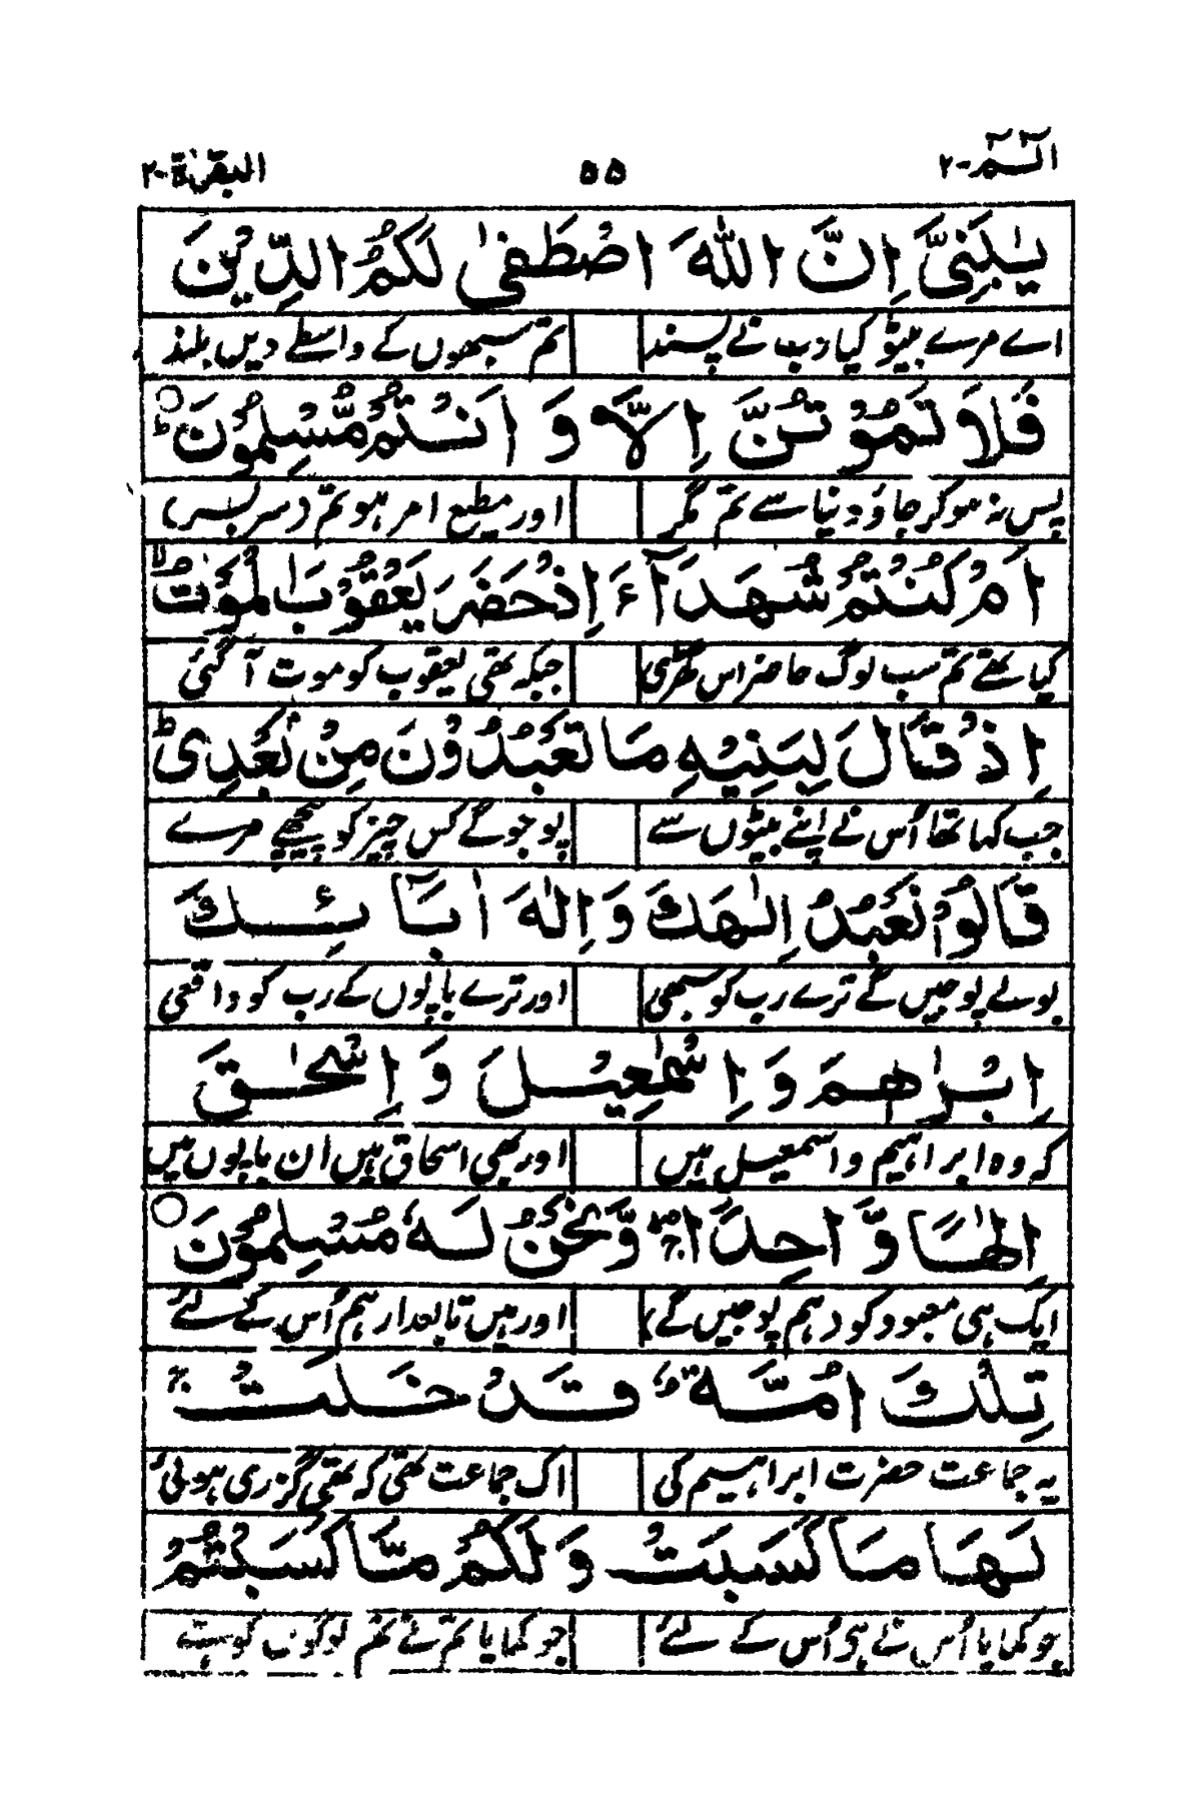 الٓمّٓ-٢ ٥٥ البقرة-٢
يٰبَنِيَّ اِنَّ اللّٰهَ اصْطَفٰى لَكُمُ الدِّيْنَ
اے مرے بیٹو کیا رب نے پسند تم سبھوں کے واسطے دیں بلند
فَلَا تَمُوْتُنَّ اِلَّا وَ اَنْتُمْ مُّسْلِمُوْنَ ○ ط
پس نہ ہو کر جاؤ دنیا سے تم مگر اور مطیع امر ہو تم (سر بسر)
اَمْ كُنْتُمْ شُهَدَآءَ اِذْ حَضَرَ يَعْقُوْبَ الْمَوْتُ لا
کیا تھے تم سب لوگ حاضر اس گھڑی جبکہ تھی یعقوب کو موت آ گئی
اِذْ قَالَ لِبَنِيْهِ مَا تَعْبُدُوْنَ مِنْ بَعْدِىْ ط
جب کہا تھا اُس نے اپنے بیٹوں سے پوجوگے کس چیز کو پیچھے مرے
قَالُوْا نَعْبُدُ اِلٰهَكَ وَ اِلٰهَ اٰبَآئِكَ
بولے پوجیں گے ترے رب کو سبھی اور ترے باپوں کے رب کو واقعی
اِبْرٰهٖمَ وَ اِسْمٰعِيْلَ وَ اِسْحٰقَ
کہ وہ ابراہیم و اسمعیل ہیں اور بھی اسحاق ہیں ان باپوں میں
اِلٰهًا وَّاحِدًا ۖ ج وَّ نَحْنُ لَهٗ مُسْلِمُوْنَ ○
ایک ہی معبود کو (ہم پوجیں گے) اور ہیں تابعدار ہم اُس کے لئے
تِلْكَ اُمَّةٌ قَدْ خَلَتْ ج
یہ جماعت حضرت ابراہیم کی اک جماعت تھی کہ تھی گزری ہوئی
لَهَا مَا كَسَبَتْ وَ لَكُمْ مَّا كَسَبْتُمْ
جو کمایا اُس نے ہی اُس کے لئے جو کمایا تم نے تم لوگوں کو